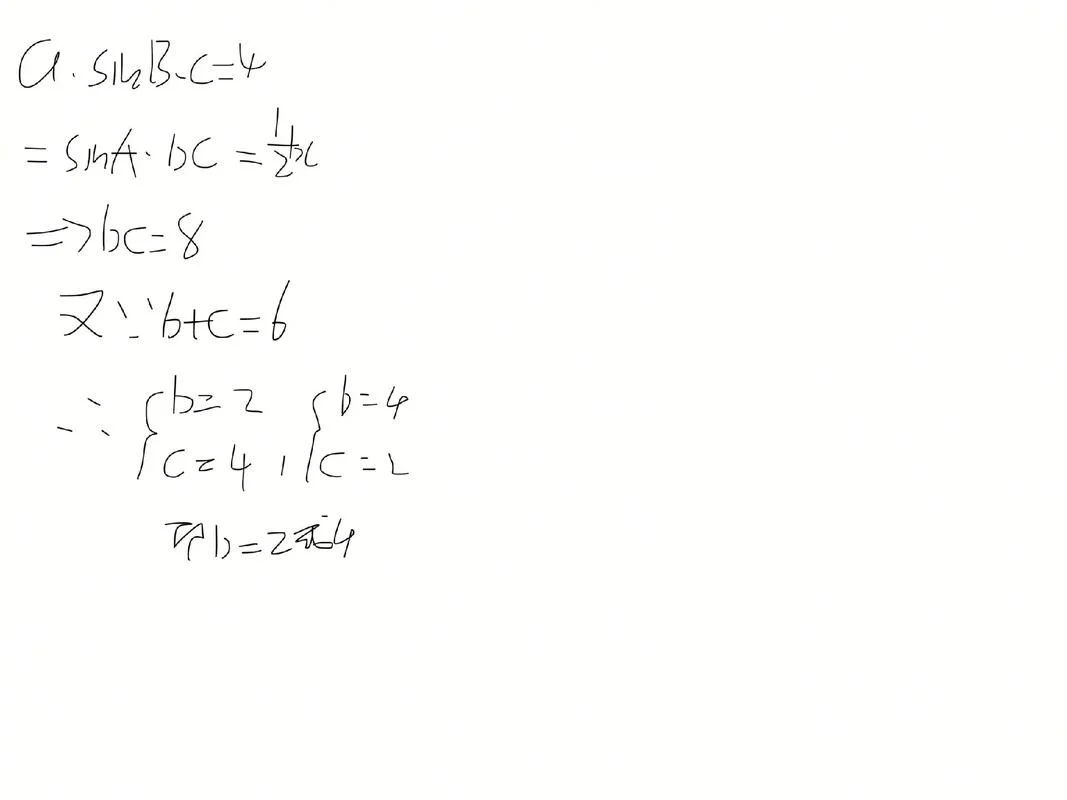 a·sinB·c=4
=sinA·bc=1/2bc
=>bc=8
又∵b+c=6
∴{b=2 {b=4
{c=4,{c=2
即b=2或4